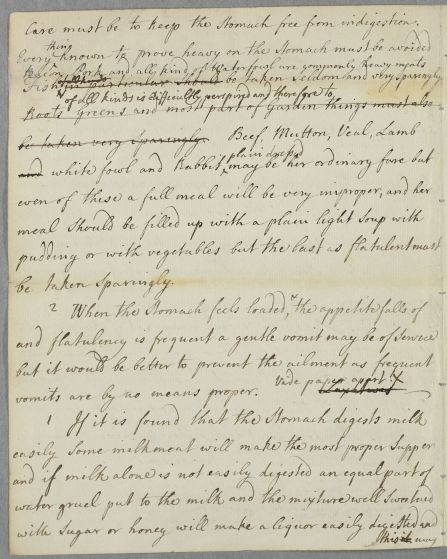 Care must be to keep the Stomach free from indigestion.
thing
Every known to prove heavy on the Stomach must be avoided
Bacon Pork and all kinds of Waterfowl are commonly heavy meals
Fish in particular be taken seldom and very sparingly
of all kinds is difficultly perspired and therefore to
Roots greens and most part of Garden things must also
be taken very sparingly. Beef, Mutton, Veal, Lamb
plain dress'd
and white fowl and Rabbit may be her ordinary fare but
even of these a full meal will be very improper, and her
meal should be filled up with a plain light Soup with
pudding or with vegetables but the last as flatulent must
be taken Sparingly.
2 When the Stomach feels loaded, or the appetite falls of
and flatulency is frequent a gentle vomit may be of Service
but it would be better to prevent the ailment as frequent
vomits are by no means proper. Vide paper apart X
1 If it is found that the Stomach digests milk
easily Some milkmeat will make the most proper Supper
and if milk alone is not easily digested an equal part of
water gruel put to the milk and the mixture well Sweetned
with Sugar or honey will make a liquor easily digested and
this may